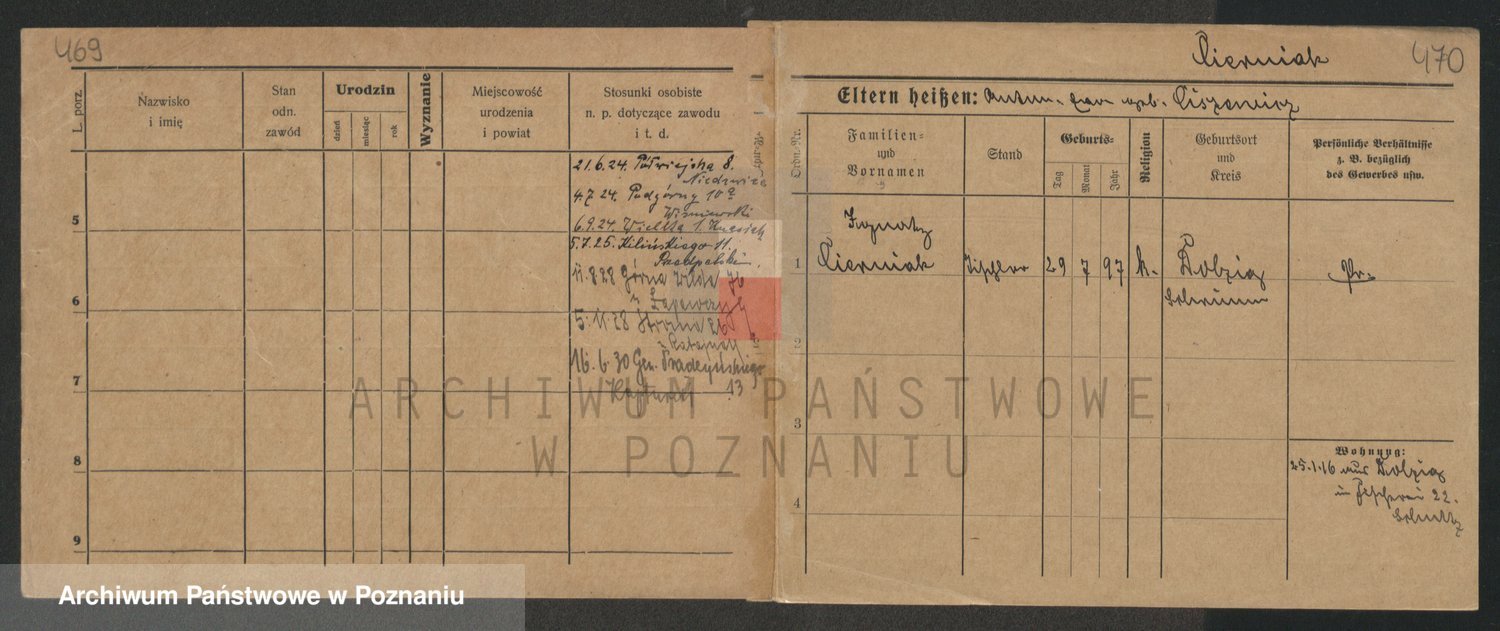 469
L. porz.
Nazwisko
i imię
Stan
odn.
zawód
Urodzin
dzień
miesiąc
rok
Wyznanie
Miejscowość
urodzenia
i powiat
Stosunki osobiste
n. p. dotyczące zawodu
i t. d.
21.6.24. Półwiejska 8.
4.7.24. Podgórny 10a
Wiśniewski
6.9.24. Wielka 1.
5.7.25. Kilińskiego 11.
11.8.28 Górna Wilda 76
5.11.28 26
16.6.30 Gen. Prądzyńskiego
13
5
6
7
8
9
Cierniak
470
Eltern heißen:
Ordn.-Nr.
Familien-
und
Vornamen
Stand
Geburts-
Tag
Monat
Jahr
Religion
Geburtsort
und
Kreis
Persönliche Verhältnisse
z. B. bezüglich
des Gewerbes usw.
1
Ignatz
Cierniak
Tischler
29
7
97
k.
Dolzig
Schrimm
Pr.
2
3
4
Wohnung:
25.1.16 aus Dolzig
in Fischerei 22.
ARCHIWUM PAŃSTWOWE
W POZNANIU
Archiwum Państwowe w Poznaniu